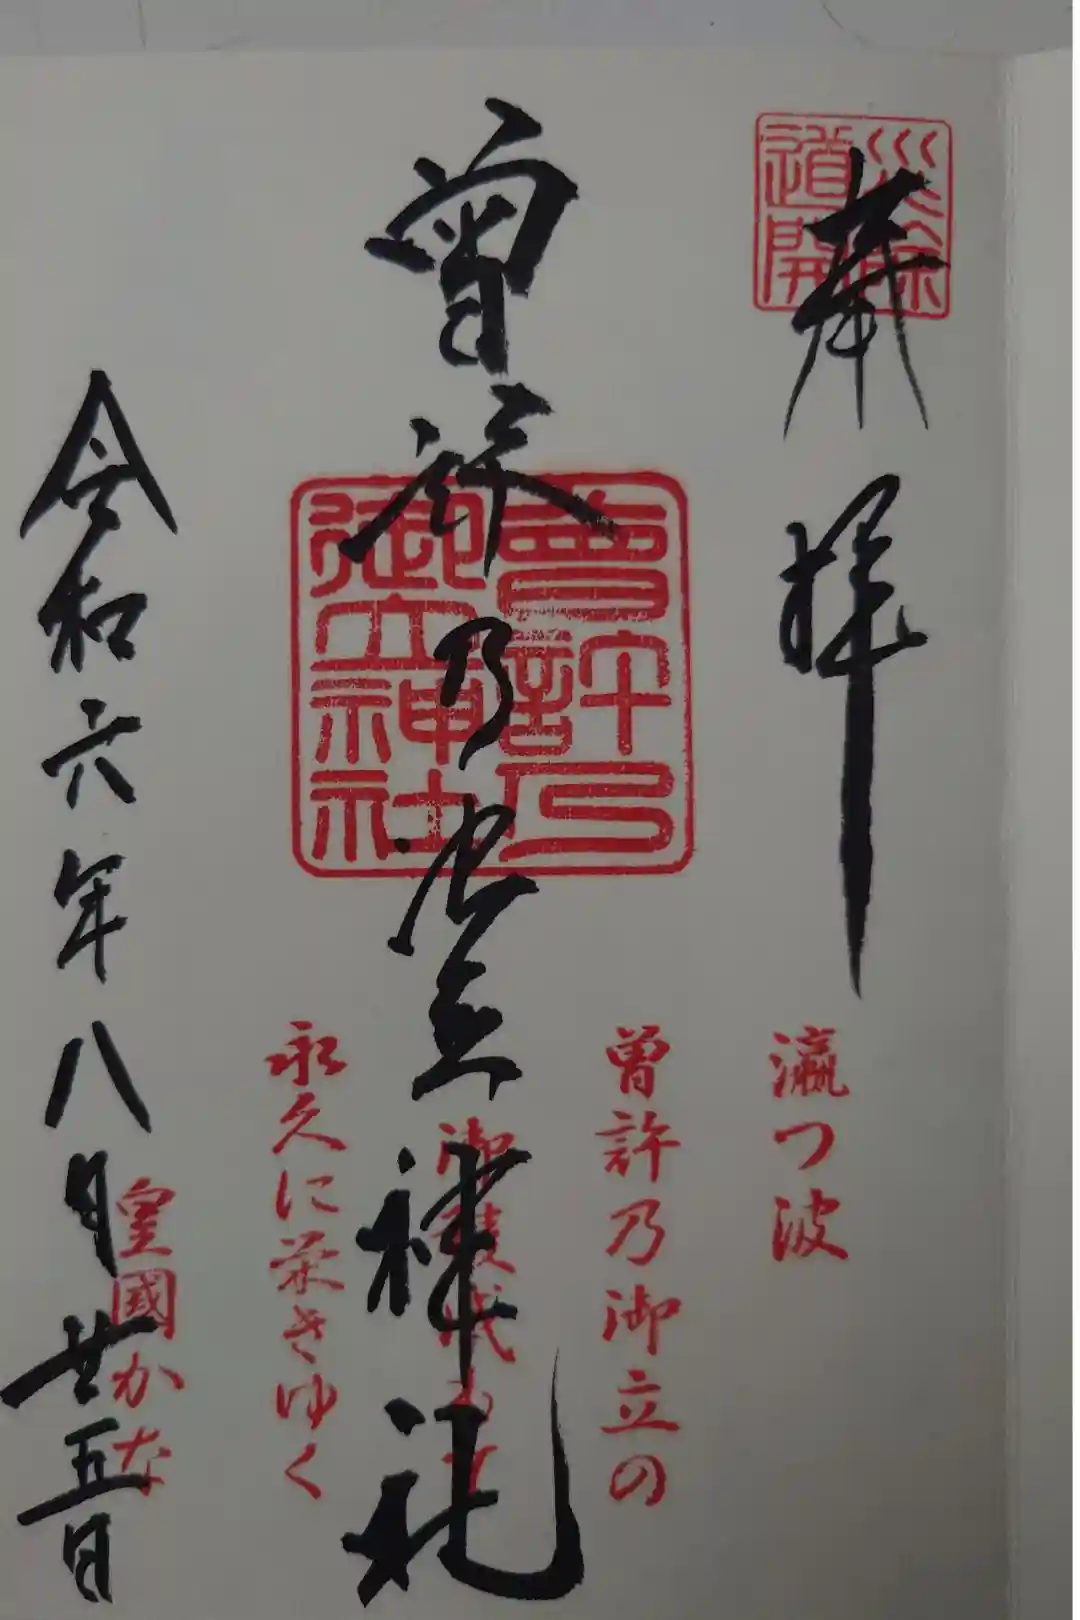 災除
道開
奉拝
瀛つ波
曽許乃御立の
曽許乃御立神社
曾許乃
御立神社
御稜威
永久に栄きゆく
皇國かな
令和六年八月廿五日